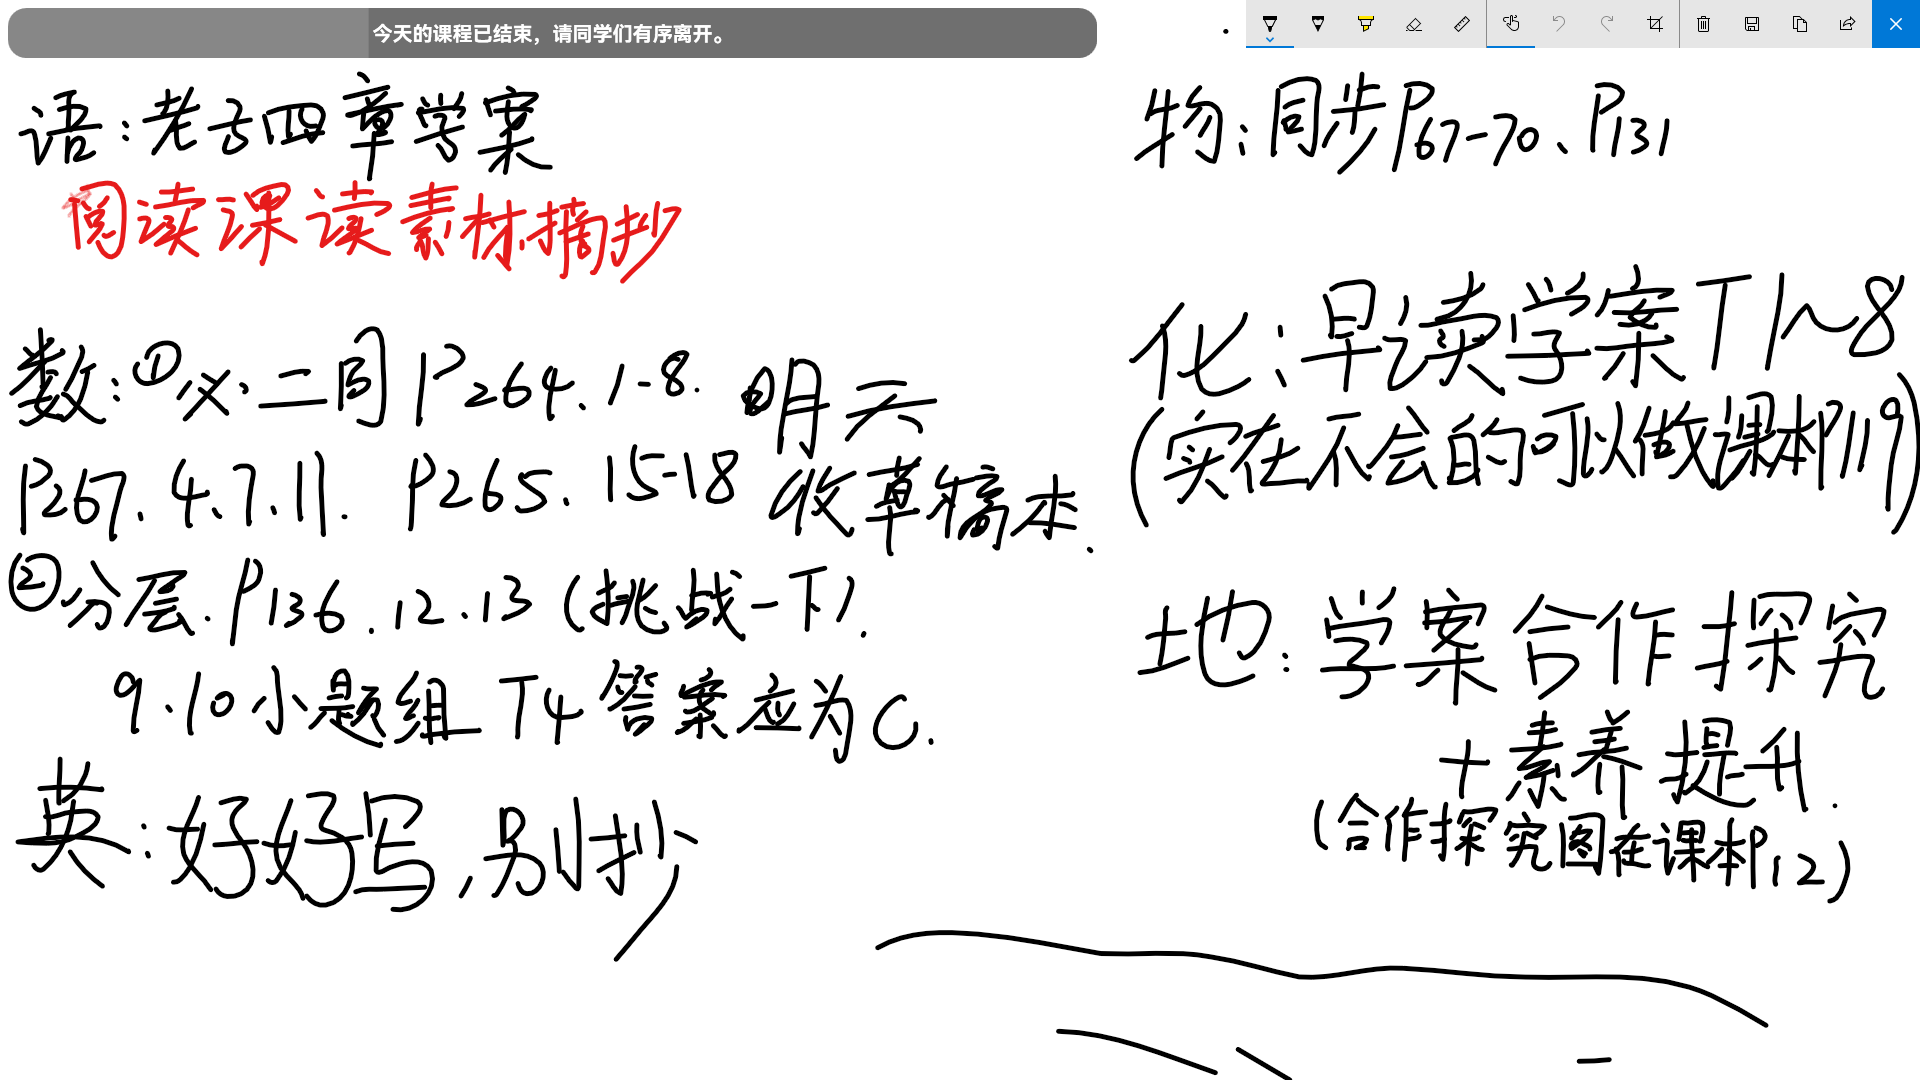 今天的课程已结束，请同学们有序离开。
语：老子四章学案
阅读课读素材摘抄
数：①必二同P264.1-8. 明天
P267.4.7.11. P265.15-18 收草稿本.
②分层.P136.12.13（挑战一下）.
9.10小题组T4答案应为C.
英：好好写,别抄
物：同步P67-70、P131
化：早读学案T1~8
（实在不会的可以做课本P119）
地：学案合作探究
+素养提升.
（合作探究图在课本P12）